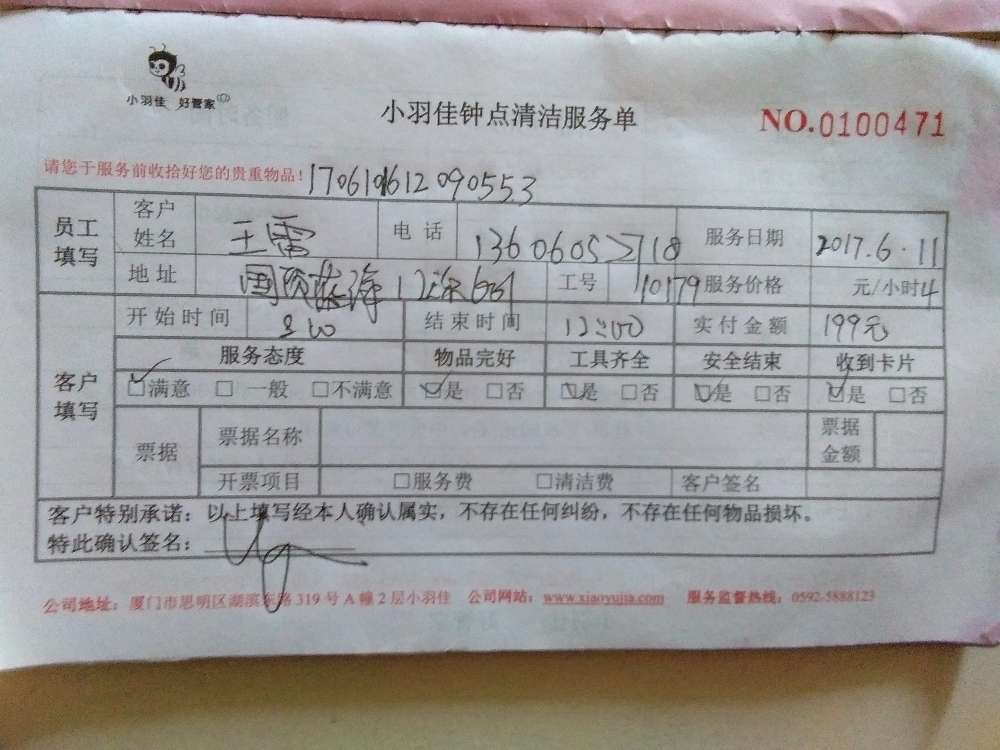 小羽佳 好管家
小羽佳钟点清洁服务单
NO.0100471
请您于服务前收拾好您的贵重物品!
员工填写 客户姓名 王雷 电话 服务日期 2017.6.11
地址 12 工号 10179 服务价格 元/小时4
客户填写 开始时间 结束时间 12:00 实付金额 199元
服务态度 物品完好 工具齐全 安全结束 收到卡片
☑满意 □一般 □不满意 ☑是 □否 ☑是 □否 ☑是 □否 ☑是 □否
票据 票据名称 票据金额
开票项目 □服务费 □清洁费 客户签名
客户特别承诺：以上填写经本人确认属实，不存在任何纠纷，不存在任何物品损坏。
特此确认签名：
公司地址：厦门市思明区湖滨东路319号A幢2层小羽佳 公司网站：www.xiaoyujia.com 服务监督热线：0592-5888123